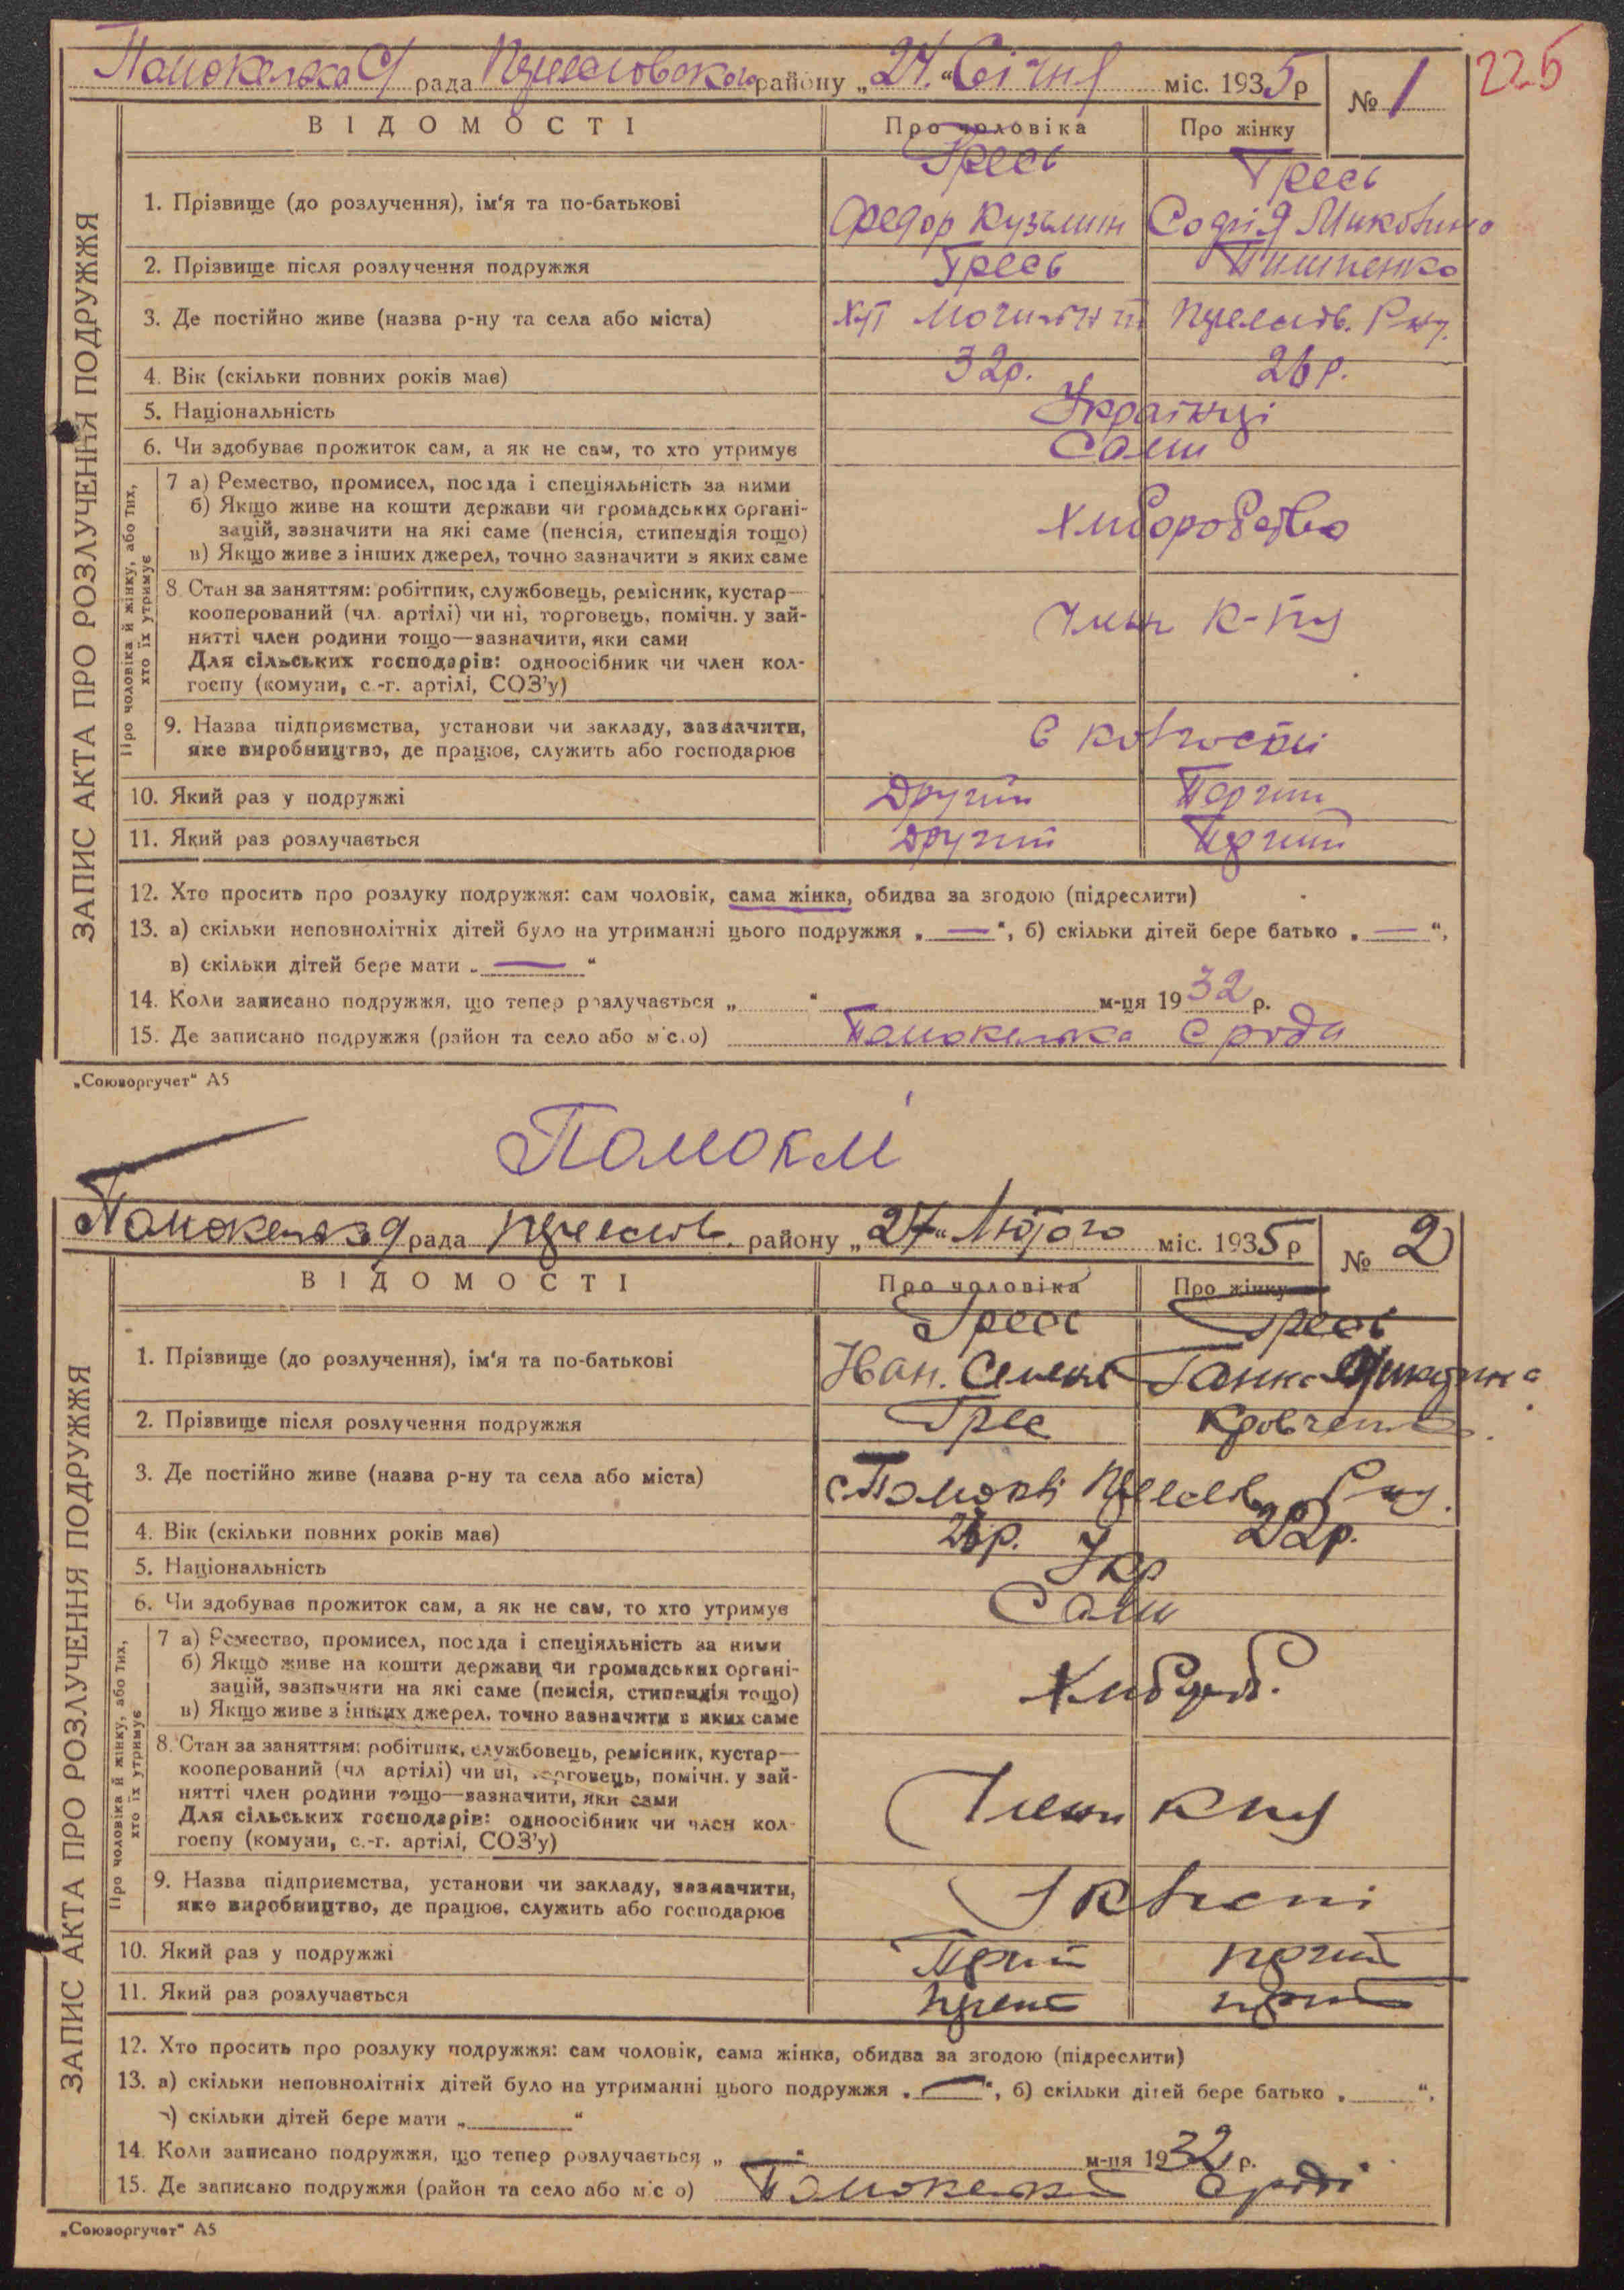 рада району „24.“ Січня міс. 1935 р № 1 225
ВІДОМОСТІ Про чоловіка Про жінку
ЗАПИС АКТА ПРО РОЗЛУЧЕННЯ ПОДРУЖЖЯ
Гресь Гресь
1. Прізвище (до розлучення), ім'я та по-батькові Федор Кузьмин Софія
2. Прізвище після розлучення подружжя Гресь
3. Де постійно живе (назва р-ну та села або міста) Хут
4. Вік (скільки повних років має) 32р. 26р.
5. Національність Українці
6. Чи здобуває прожиток сам, а як не сам, то хто утримує Сами
Про чоловіка й жінку, або тих, хто їх утримує
7 а) Ремество, промисел, посада і спеціяльність за ними
б) Якщо живе на кошти держави чи громадських органі-
зацій, зазначити на які саме (пенсія, стипендія тощо) Хліборобство
в) Якщо живе з інших джерел, точно зазначити з яких саме
8. Стан за заняттям: робітник, службовець, ремісник, кустар—
кооперований (чл. артілі) чи ні, торговець, помічн. у зай-
нятті член родини тощо—зазначити, яки сами Член к-пу
Для сільських господарів: одноосібник чи член кол-
госпу (комуни, с.-г. артілі, СОЗ'у)
9. Назва підприємства, установи чи закладу, зазначити, в колгоспі
яке виробництво, де працює, служить або господарює
10. Який раз у подружжі Другий Перший
11. Який раз розлучається Другий Перший
12. Хто просить про розлуку подружжя: сам чоловік, сама жінка, обидва за згодою (підреслити)
13. а) скільки неповнолітніх дітей було на утриманні цього подружжя „ — “, б) скільки дітей бере батько „ — “,
в) скільки дітей бере мати „ — “
14. Коли записано подружжя, що тепер розлучається „ “ м-ця 1932 р.
15. Де записано подружжя (район та село або місо)
„Союзоргучет“ А5
Помоклі
рада району „27“ Лютого міс. 1935 р № 2
ВІДОМОСТІ Про чоловіка Про жінку
ЗАПИС АКТА ПРО РОЗЛУЧЕННЯ ПОДРУЖЖЯ
Гресь Гресь
1. Прізвище (до розлучення), ім'я та по-батькові Іван. Ганна
2. Прізвище після розлучення подружжя Грес
3. Де постійно живе (назва р-ну та села або міста)
4. Вік (скільки повних років має) 26р. 22р.
5. Національність Укр
6. Чи здобуває прожиток сам, а як не сам, то хто утримує Сами
Про чоловіка й жінку, або тих, хто їх утримує
7 а) Ремество, промисел, посада і спеціяльність за ними
б) Якщо живе на кошти держави чи громадських органі-
зацій, зазначити на які саме (пенсія, стипендія тощо)
в) Якщо живе з інших джерел, точно зазначити з яких саме
8. Стан за заняттям: робітник, службовець, ремісник, кустар—
кооперований (чл артілі) чи ні, торговець, помічн. у зай-
нятті член родини тощо—зазначити, яки сами Члени кпу
Для сільських господарів: одноосібник чи член кол-
госпу (комуни, с.-г. артілі, СОЗ'у)
9. Назва підприємства, установи чи закладу, зазначити,
яке виробництво, де працює, служить або господарює
10. Який раз у подружжі
11. Який раз розлучається
12. Хто просить про розлуку подружжя: сам чоловік, сама жінка, обидва за згодою (підреслити)
13. а) скільки неповнолітніх дітей було на утриманні цього подружжя „ — “, б) скільки дітей бере батько „ “,
в) скільки дітей бере мати „ “
14. Коли записано подружжя, що тепер розлучається „ “ м-ця 1932 р.
15. Де записано подружжя (район та село або міс о)
„Союзоргучет“ А5